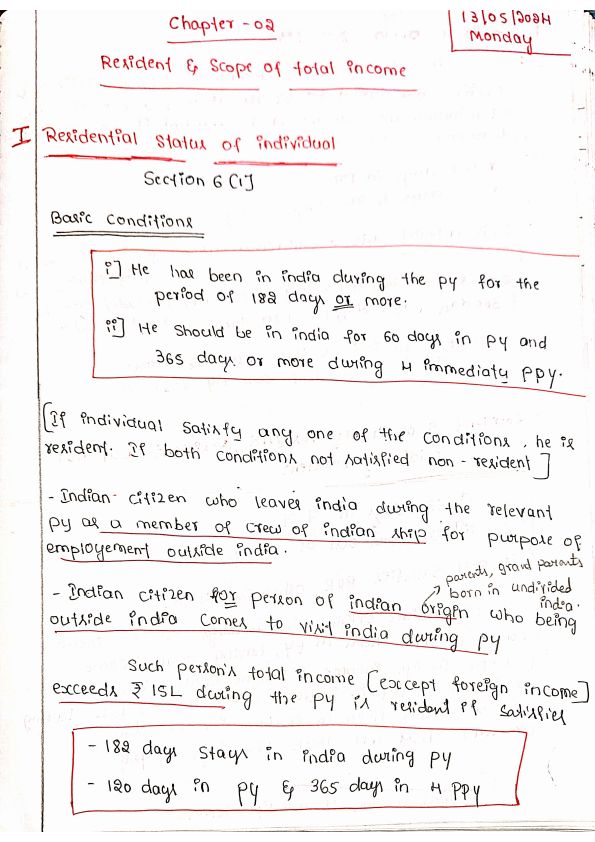 Chapter - 02
13/05/2024
Monday
Resident & Scope of total income
I Residential Status of individual
Section 6 (1]
Basic Conditions
i] He has been in india during the PY for the
period of 182 days or more.
ii] He should be in india for 60 days in PY and
365 days or more during 4 immediaty PPY.
[If individual satisfy any one of the conditions, he is
resident. If both conditions not satisfied non-resident]
- Indian citizen who leaves india during the relevant
PY as a member of crew of indian ship for purpose of
employement outside india.
parents, grand parents
born in undivided
india.
- Indian citizen for person of indian origin who being
outside india comes to visit india during PY
Such person's total income [except foreign income]
exceeds ₹ 15L during the PY is resident if satisfies
- 182 days stays in india during PY
- 120 days in PY & 365 days in 4 PPY